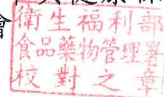 衛生福利部
會
食品藥物管理署
校對之章